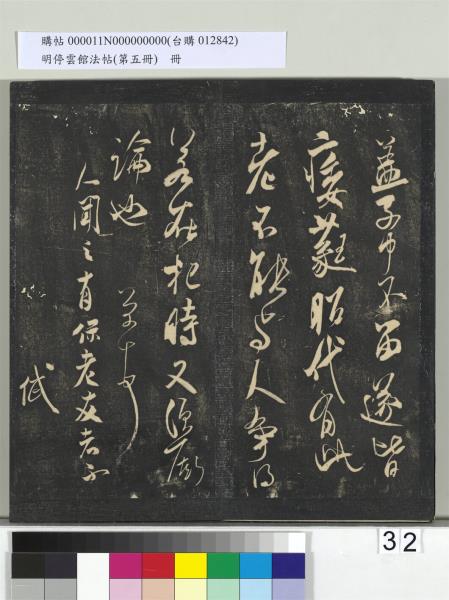 購帖 000011N000000000(台購 012842)
明停雲館法帖(第五冊) 冊
蓋不留遂皆
昭代有此
老不能与人争
若在杞時又須廝
論也
人聞之肯保老友者不
32